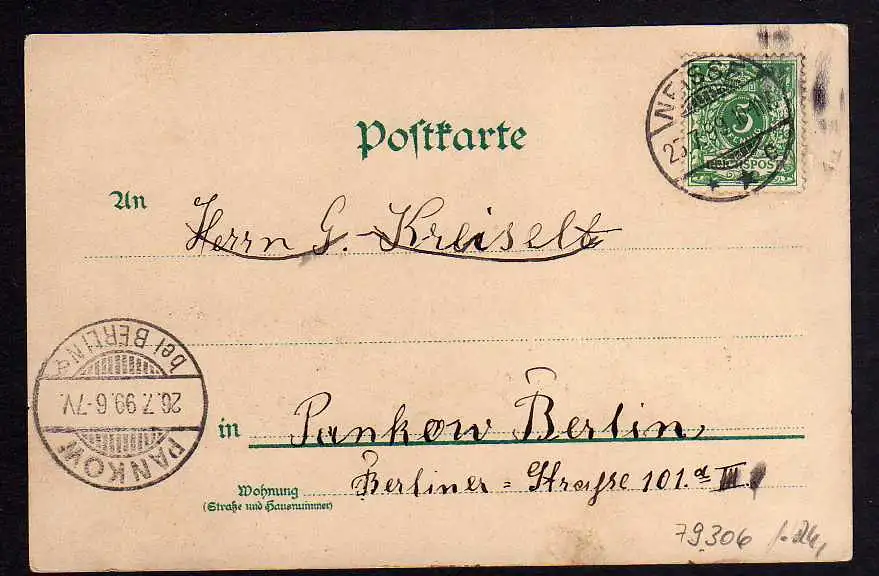 Postkarte
NEISSE
5
REICHSPOST
An
Herrn G. Kreiselt
bei BERLIN
26.7.99.6-7V.
PANKOW
in Pankow Berlin,
Wohnung Berliner=Straße 101.a III.
(Straße und Hausnummer)
79306